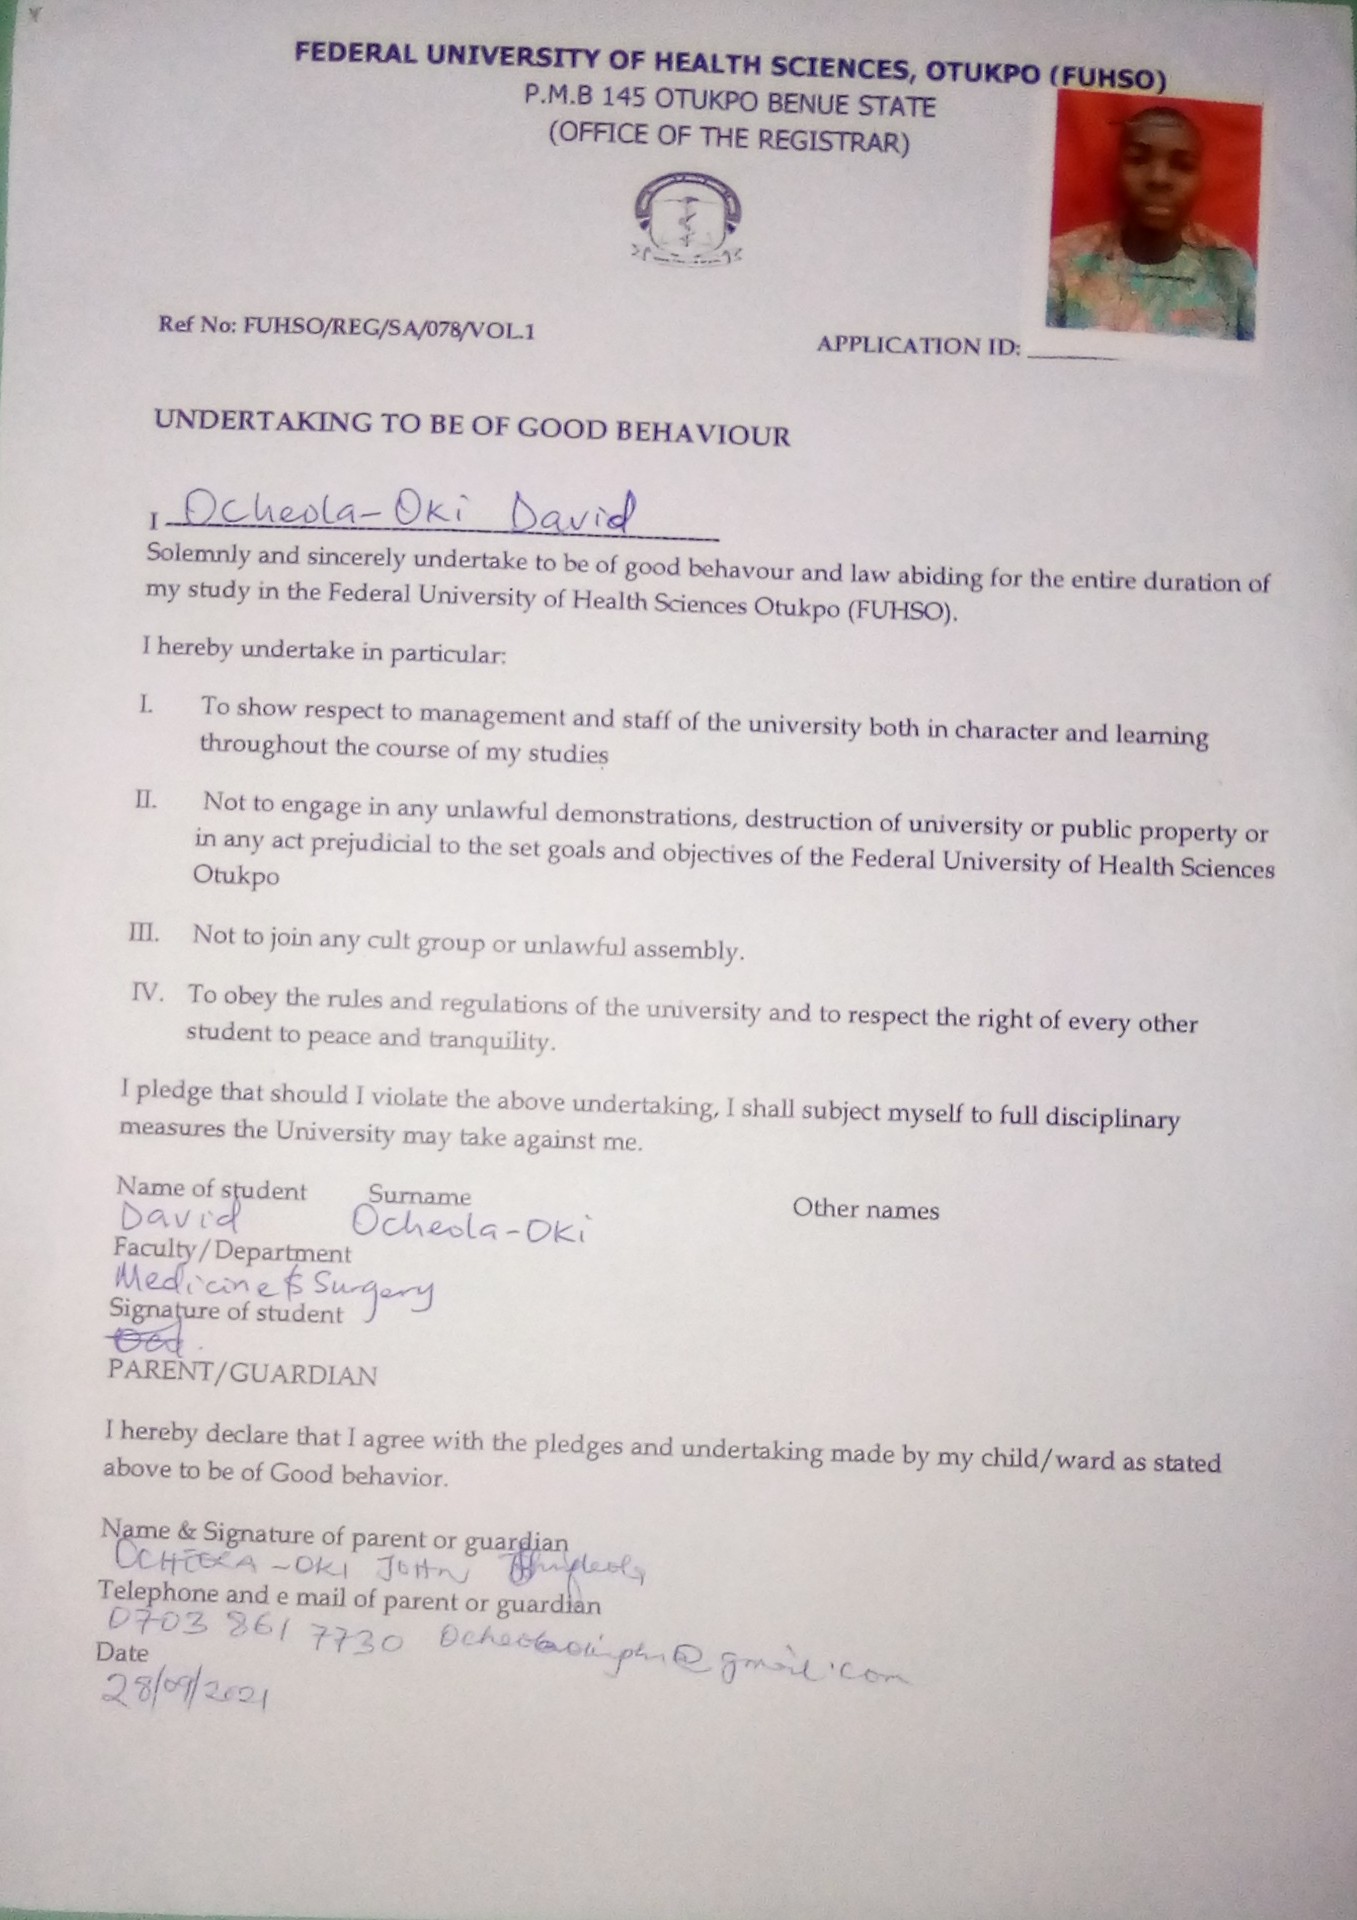 FEDERAL UNIVERSITY OF HEALTH SCIENCES, OTUKPO (FUHSO)
P.M.B 145 OTUKPO BENUE STATE
(OFFICE OF THE REGISTRAR)
Ref No: FUHSO/REG/SA/078/VOL.1
APPLICATION ID:
UNDERTAKING TO BE OF GOOD BEHAVIOUR
I Ocheola-Oki David
Solemnly and sincerely undertake to be of good behavour and law abiding for the entire duration of
my study in the Federal University of Health Sciences Otukpo (FUHSO).
I hereby undertake in particular:
I. To show respect to management and staff of the university both in character and learning
throughout the course of my studies
II. Not to engage in any unlawful demonstrations, destruction of university or public property or
in any act prejudicial to the set goals and objectives of the Federal University of Health Sciences
Otukpo
III. Not to join any cult group or unlawful assembly.
IV. To obey the rules and regulations of the university and to respect the right of every other
student to peace and tranquility.
I pledge that should I violate the above undertaking, I shall subject myself to full disciplinary
measures the University may take against me.
Name of student Surname Other names
David Ocheola-Oki
Faculty/Department
Medicine & Surgery
Signature of student
PARENT/GUARDIAN
I hereby declare that I agree with the pledges and undertaking made by my child/ward as stated
above to be of Good behavior.
Name & Signature of parent or guardian
OCHEOLA-OKI JOHN
Telephone and e mail of parent or guardian
0703 861 7730
Date
28/09/2021